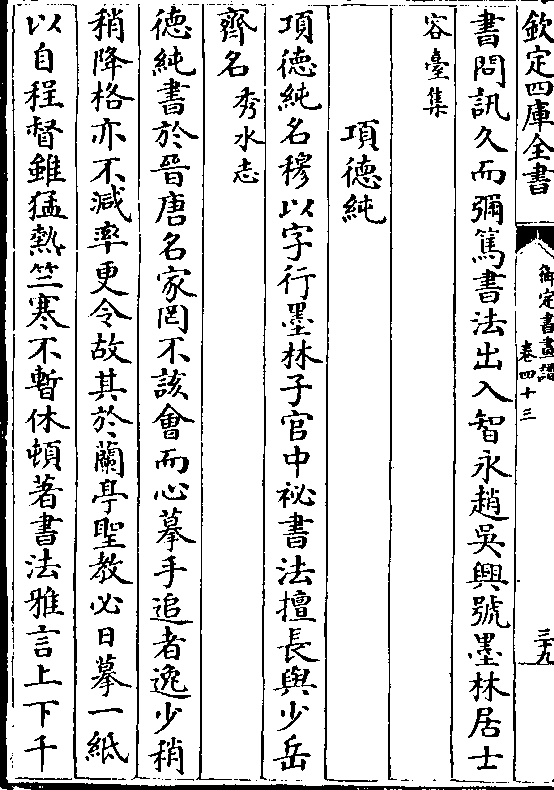 欽定四庫全書
御定書畫譜
卷四十三
三十九
書問訊久而彌篤書法出入智永趙吳興號墨林居士
容臺集
項德純
項德純名穆以字行墨林子官中祕書法擅長與少岳
齊名秀水志
德純書於晉唐名家罔不該會而心摹手追者逸少稍
稍降格亦不減率更令故其於蘭亭聖教必日摹一紙
以自程督雖猛熱竺寒不暫休頓著書法雅言上下千